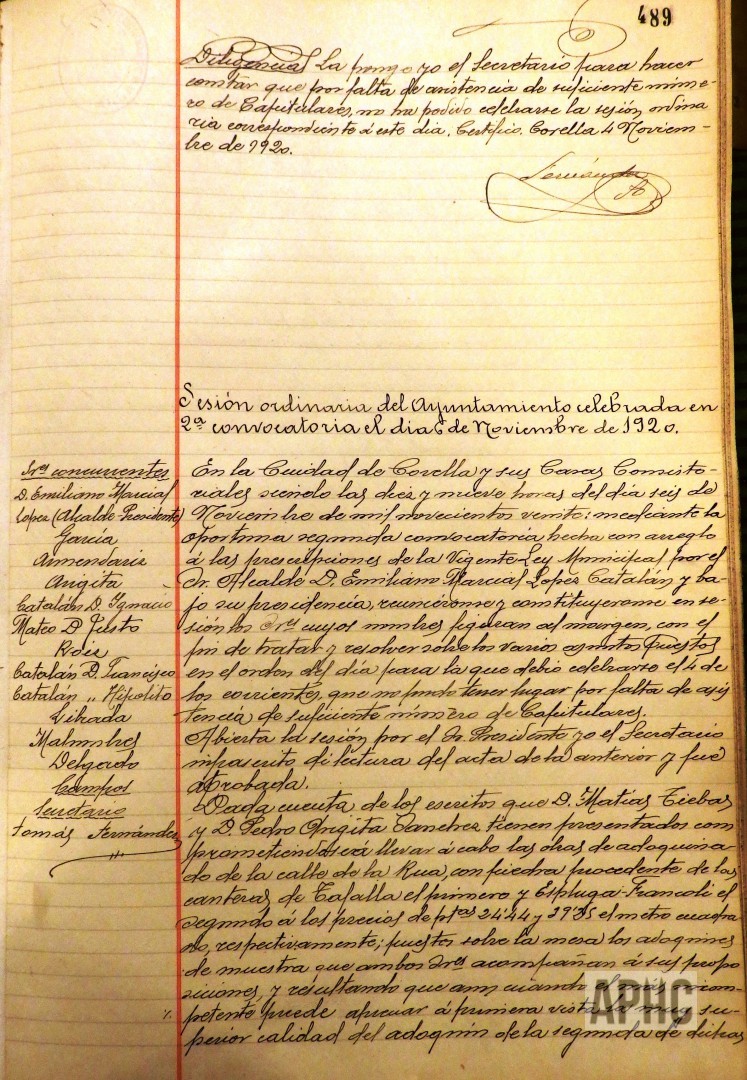 489
Diligencia/ La pongo yo el Secretario para hacer
constar que por falta de asistencia de suficiente núme-
ro de Capitulares, no ha podido celebrarse la sesión ordina
ria correspondiente á este dia. Certifico. Corella 4 Noviem-
bre de 1920.
Fernández
Sesión ordinaria del Ayuntamiento celebrada en
2ª convocatoria el dia 6 de Noviembre de 1920.
Sres concurrentes
D. Emiliano Marcial
Lopez (Alcalde Presidente)
Garcia
Armendariz
Angita
Catalán D. Ignacio
Mateo D. Justo
Catalán D. Francisco
Catalán " Hipolito
Librada
Malumbres
Delgado
Campos
Secretario
Tomás Fernández
En la Ciudad de Corella y sus Casas Consisto-
riales siendo las diez y nueve horas del día seis de
Noviembre de mil novecientos veinte: mediante la
oportuna segunda convocatoria hecha con arreglo
á las prescripciones de la Vigente Ley Municipal por el
Sr. Alcalde D. Emiliano Marcial Lopez Catalán y ba-
jo su presidencia, reunieronse y constituyeronse en se-
sión los Sres cuyos nombres figuran al margen, con el
fin de tratar y resolver sobre los varios asuntos puestos
en el orden del dia para la que debio celebrarse el 4 de
los corrientes, que no pudo tener lugar por falta de asis
tencia de suficiente número de Capitulares.
Abierta la sesión por el Sr. Presidente yo el Secretario
infrascrito di lectura del acta de la anterior y fué
aprobada.
Dada cuenta de los escritos que D. Matías Tiebas
y D. Pedro Angita Sanchez tienen presentados com
prometiendose á llevar á cabo las obras de adoquina-
do de la calle de la Rua, con piedra procedente de las
canteras de Tafalla el primero y Espluga-Francoli el
segundo á los precios de ptas 24'44 y 29'35 el metro cuadra
do, respectivamente; puestos sobre la mesa los adoquines
de muestra que ambos Sres acompañan á sus propo
siciones, y resultando que aun cuando el más incom-
petente puede apreciar á primera vista la muy su-
perior calidad del adoquin de la segunda de dichas
APHC